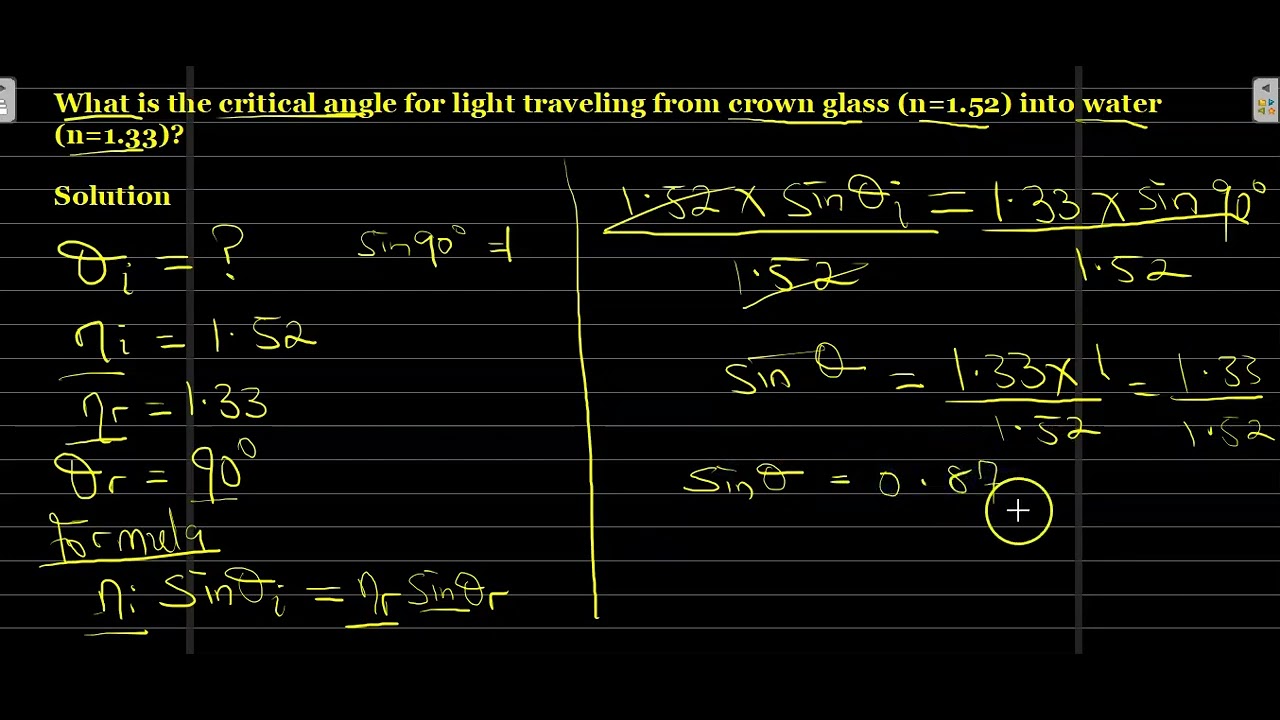 What is the critical angle for light traveling from crown glass (n=1.52) into water
(n=1.33)?
Solution
θi = ?
sin90° = 1
ηi = 1.52
ηr = 1.33
θr = 90°
formula
ηi sinθi = ηr sinθr
1.52 × sinθi = 1.33 × sin90°
1.52 1.52
sinθ = 1.33 × 1 = 1.33
1.52 1.52
sinθ = 0.87